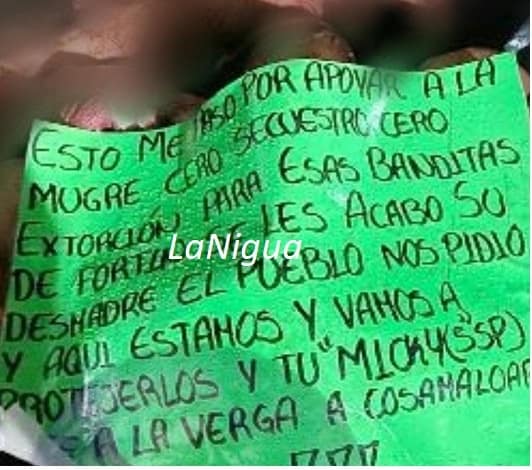 ESTO ME PASO POR APOYAR A LA
MUGRE CERO SECUESTRO CERO
EXTORCIÓN PARA ESAS BANDITAS
DE LES ACABO SU
LaNigua
DESMADRE EL PUEBLO NOS PIDIO
Y AQUI ESTAMOS Y VAMOS A
PROTEJERLOS Y TU "MICKY(SSP)
A LA VERGA A COSAMALOAP